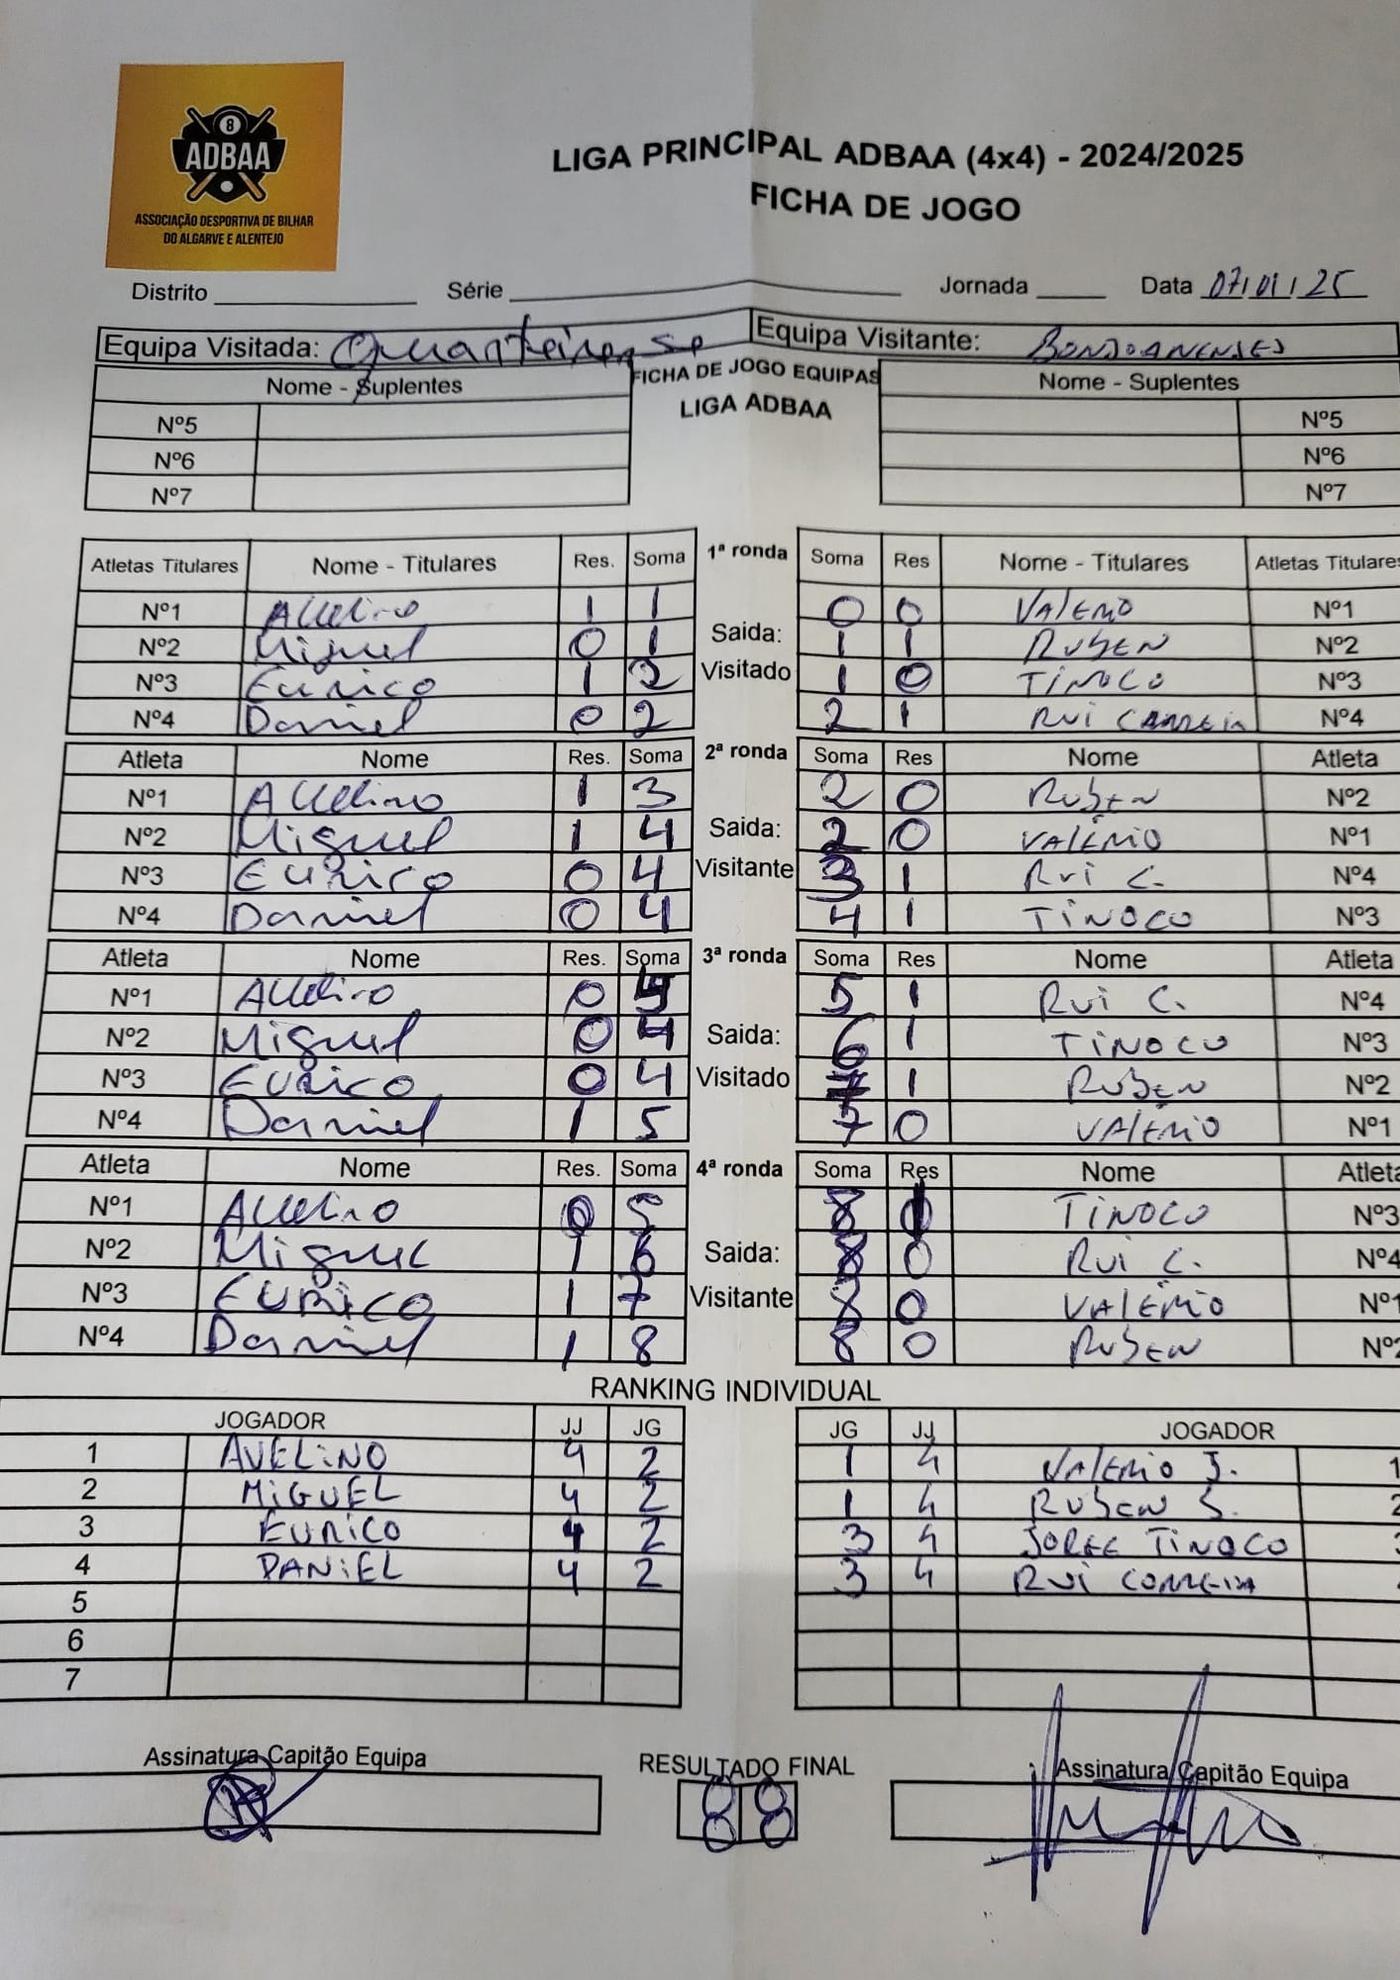 8
ADBAA
ASSOCIAÇÃO DESPORTIVA DE BILHAR
DO ALGARVE E ALENTEJO
LIGA PRINCIPAL ADBAA (4x4) - 2024/2025
FICHA DE JOGO
Distrito Série Jornada Data 07/01/25
Equipa Visitada: Quarteirense Equipa Visitante: BONJOANENSES
Nome - Suplentes FICHA DE JOGO EQUIPAS Nome - Suplentes
LIGA ADBAA
Nº5 Nº5
Nº6 Nº6
Nº7 Nº7
Atletas Titulares Nome - Titulares Res. Soma 1ª ronda Soma Res Nome - Titulares Atletas Titulares
Nº1 Avelino 1 1 0 0 VALÉRIO Nº1
Nº2 Miguel 0 1 Saida: 1 1 RUBEN Nº2
Nº3 Eurico 1 2 Visitado 1 0 TINOCO Nº3
Nº4 Daniel 0 2 2 1 RUI CORREIA Nº4
Atleta Nome Res. Soma 2ª ronda Soma Res Nome Atleta
Nº1 Avelino 1 3 2 0 RUBEN Nº2
Nº2 Miguel 1 4 Saida: 2 0 VALÉRIO Nº1
Nº3 Eurico 0 4 Visitante 3 1 RUI C. Nº4
Nº4 Daniel 0 4 4 1 TINOCO Nº3
Atleta Nome Res. Soma 3ª ronda Soma Res Nome Atleta
Nº1 Avelino 0 4 5 1 RUI C. Nº4
Nº2 Miguel 0 4 Saida: 6 1 TINOCO Nº3
Nº3 EURICO 0 4 Visitado 7 1 RUBEN Nº2
Nº4 Daniel 1 5 7 0 VALÉRIO Nº1
Atleta Nome Res. Soma 4ª ronda Soma Res Nome Atleta
Nº1 Avelino 0 5 8 1 TINOCO Nº3
Nº2 Miguel 1 6 Saida: 8 0 RUI C. Nº4
Nº3 EURICO 1 7 Visitante 8 0 VALÉRIO Nº1
Nº4 Daniel 1 8 8 0 RUBEN Nº2
RANKING INDIVIDUAL
JOGADOR JJ JG JG JJ JOGADOR
1 AVELINO 4 2 1 4 VALÉRIO J. 1
2 MIGUEL 4 2 1 4 RUBEN S. 2
3 EURICO 4 2 3 4 JORGE TINOCO 3
4 DANIEL 4 2 3 4 RUI CORREIA
5
6
7
Assinatura Capitão Equipa RESULTADO FINAL Assinatura Capitão Equipa
8 8